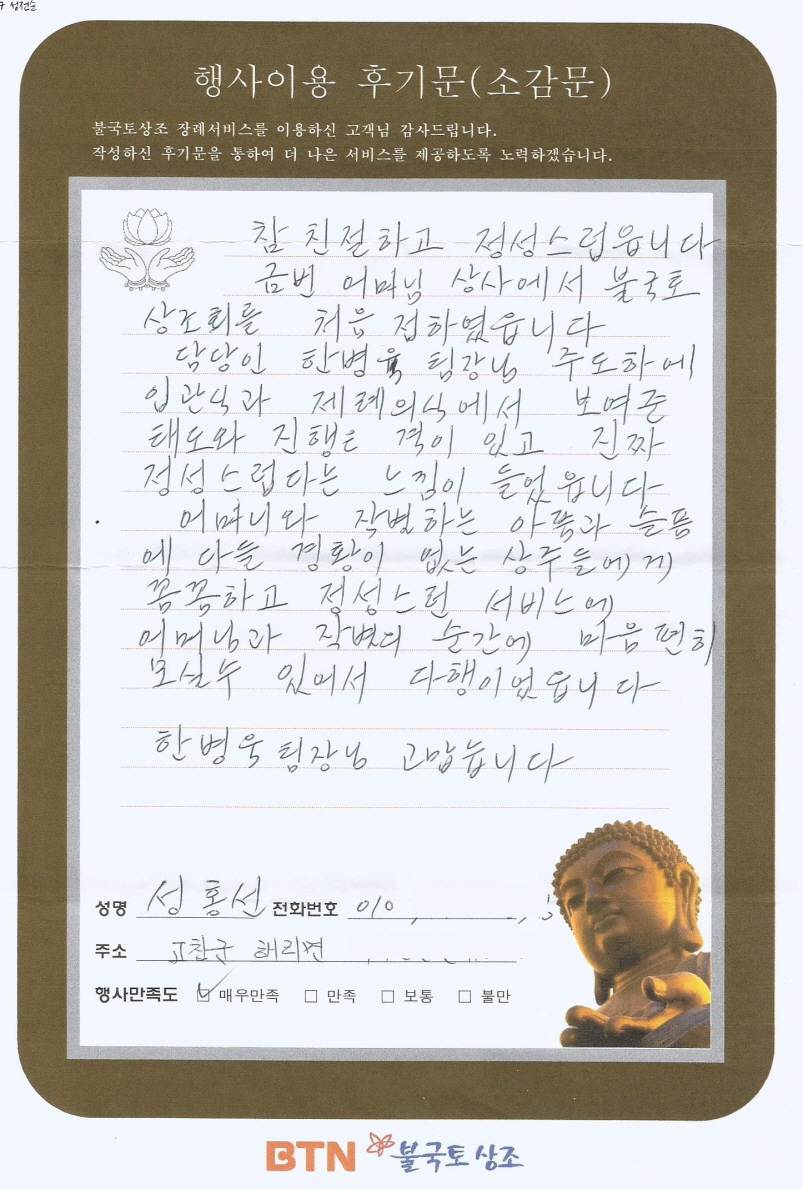 행사이용 후기문(소감문)
불국토상조 장례서비스를 이용하신 고객님 감사드립니다.
작성하신 후기문을 통하여 더 나은 서비스를 제공하도록 노력하겠습니다.
참 친절하고 정성스럽읍니다
금번 어머님 상사에서 불국토
상조회를 처음 접하였읍니다
담당인 한병욱 팀장님 주도하에
입관식과 제례의식에서 보여준
태도와 진행은 격이 있고 진짜
정성스럽다는 느낌이 들었읍니다
어머니와 작별하는 아픔과 슬픔
에 다들 경황이 없는 상주들에게
꼼꼼하고 정성스런 서비스에
어머님과 작별의 순간에 마음편히
모실수 있어서 다행이었읍니다
한병욱 팀장님 고맙습니다
성명 성홍선 전화번호 010
주소 고창군 해리면
행사만족도 ☑ 매우만족 □ 만족 □ 보통 □ 불만
BTN 불국토상조